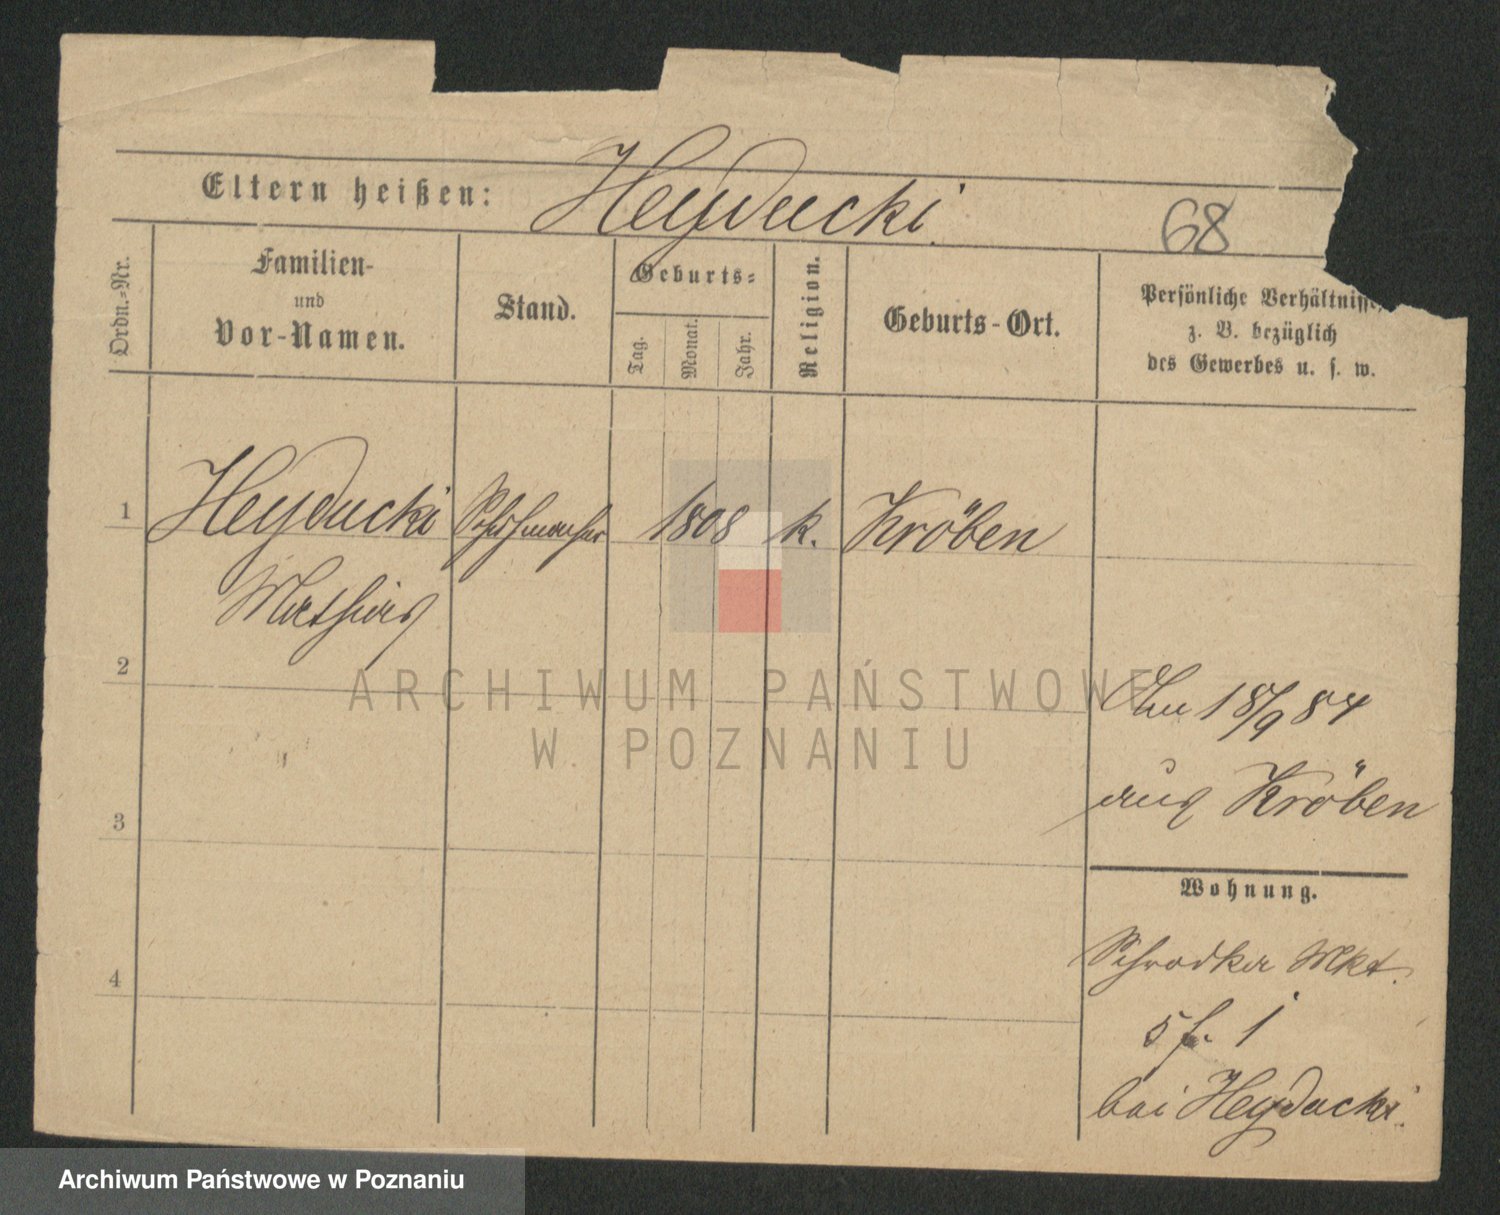 Eltern heißen: Heyducki
68
Ordn.-Nr.
Familien-
und
Vor-Namen.
Stand.
Geburts-
Tag.
Monat.
Jahr.
Religion.
Geburts-Ort.
Persönliche Verhältnisse,
z. B. bezüglich
des Gewerbes u. s. w.
1 Heyducki Schuhmacher 1808 k. Kröben
Mathias
2
Am 18/9 84
aus Kröben
3
Wohnung.
Schrodker Mkt.
4
5 f. 1
bei Heyducki.
ARCHIWUM PAŃSTWOWE
W POZNANIU
Archiwum Państwowe w Poznaniu